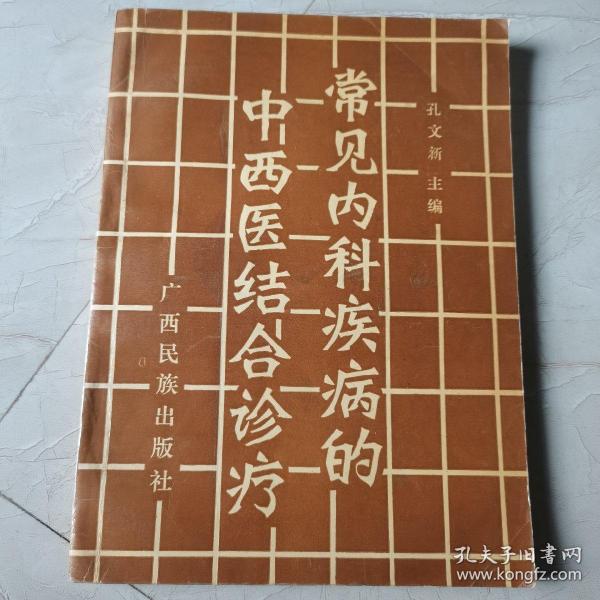 孔文新 主编
常见内科疾病的
中西医结合诊疗
广西民族出版社
孔夫子旧书网
www.kongfz.com